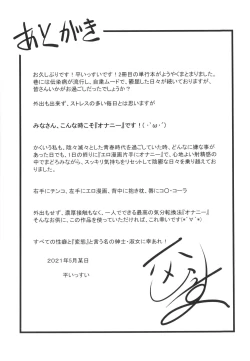 あとがき
お久しぶりです！平いっすいです！2冊目の単行本がようやくまとまりました。
巷には伝染病が流行し、自粛ムードで、鬱屈した日々が続いておりますが、
皆さんいかがお過ごしだったでしょうか？
外出も出来ず、ストレスの多い毎日とは思いますが
みなさん、こんな時こそ『オナニー』です！(・`ω・´)
かくいう私も、陰々滅々とした青春時代を過ごしていた時、どんなに嫌な事が
あった日でも、1日の終りに『エロ漫画片手にオナニー』で、心地よい射精感の
中でまどろみながら、スッキリ気持ちをリセットして陰鬱な日々を乗り越えており
ました。
右手にチンコ、左手にエロ漫画、背中に抱き枕、唇にコ〇・コーラ
外出もせず、濃厚接触もなく、一人でできる最高の気分転換法『オナニー』
そんなお供に、この作品を使っていただければ、これ幸いです(*´▽`*)
すべての性癖と『変態』と言う名の紳士・淑女に幸あれ！
2021年5月某日
平いっすい